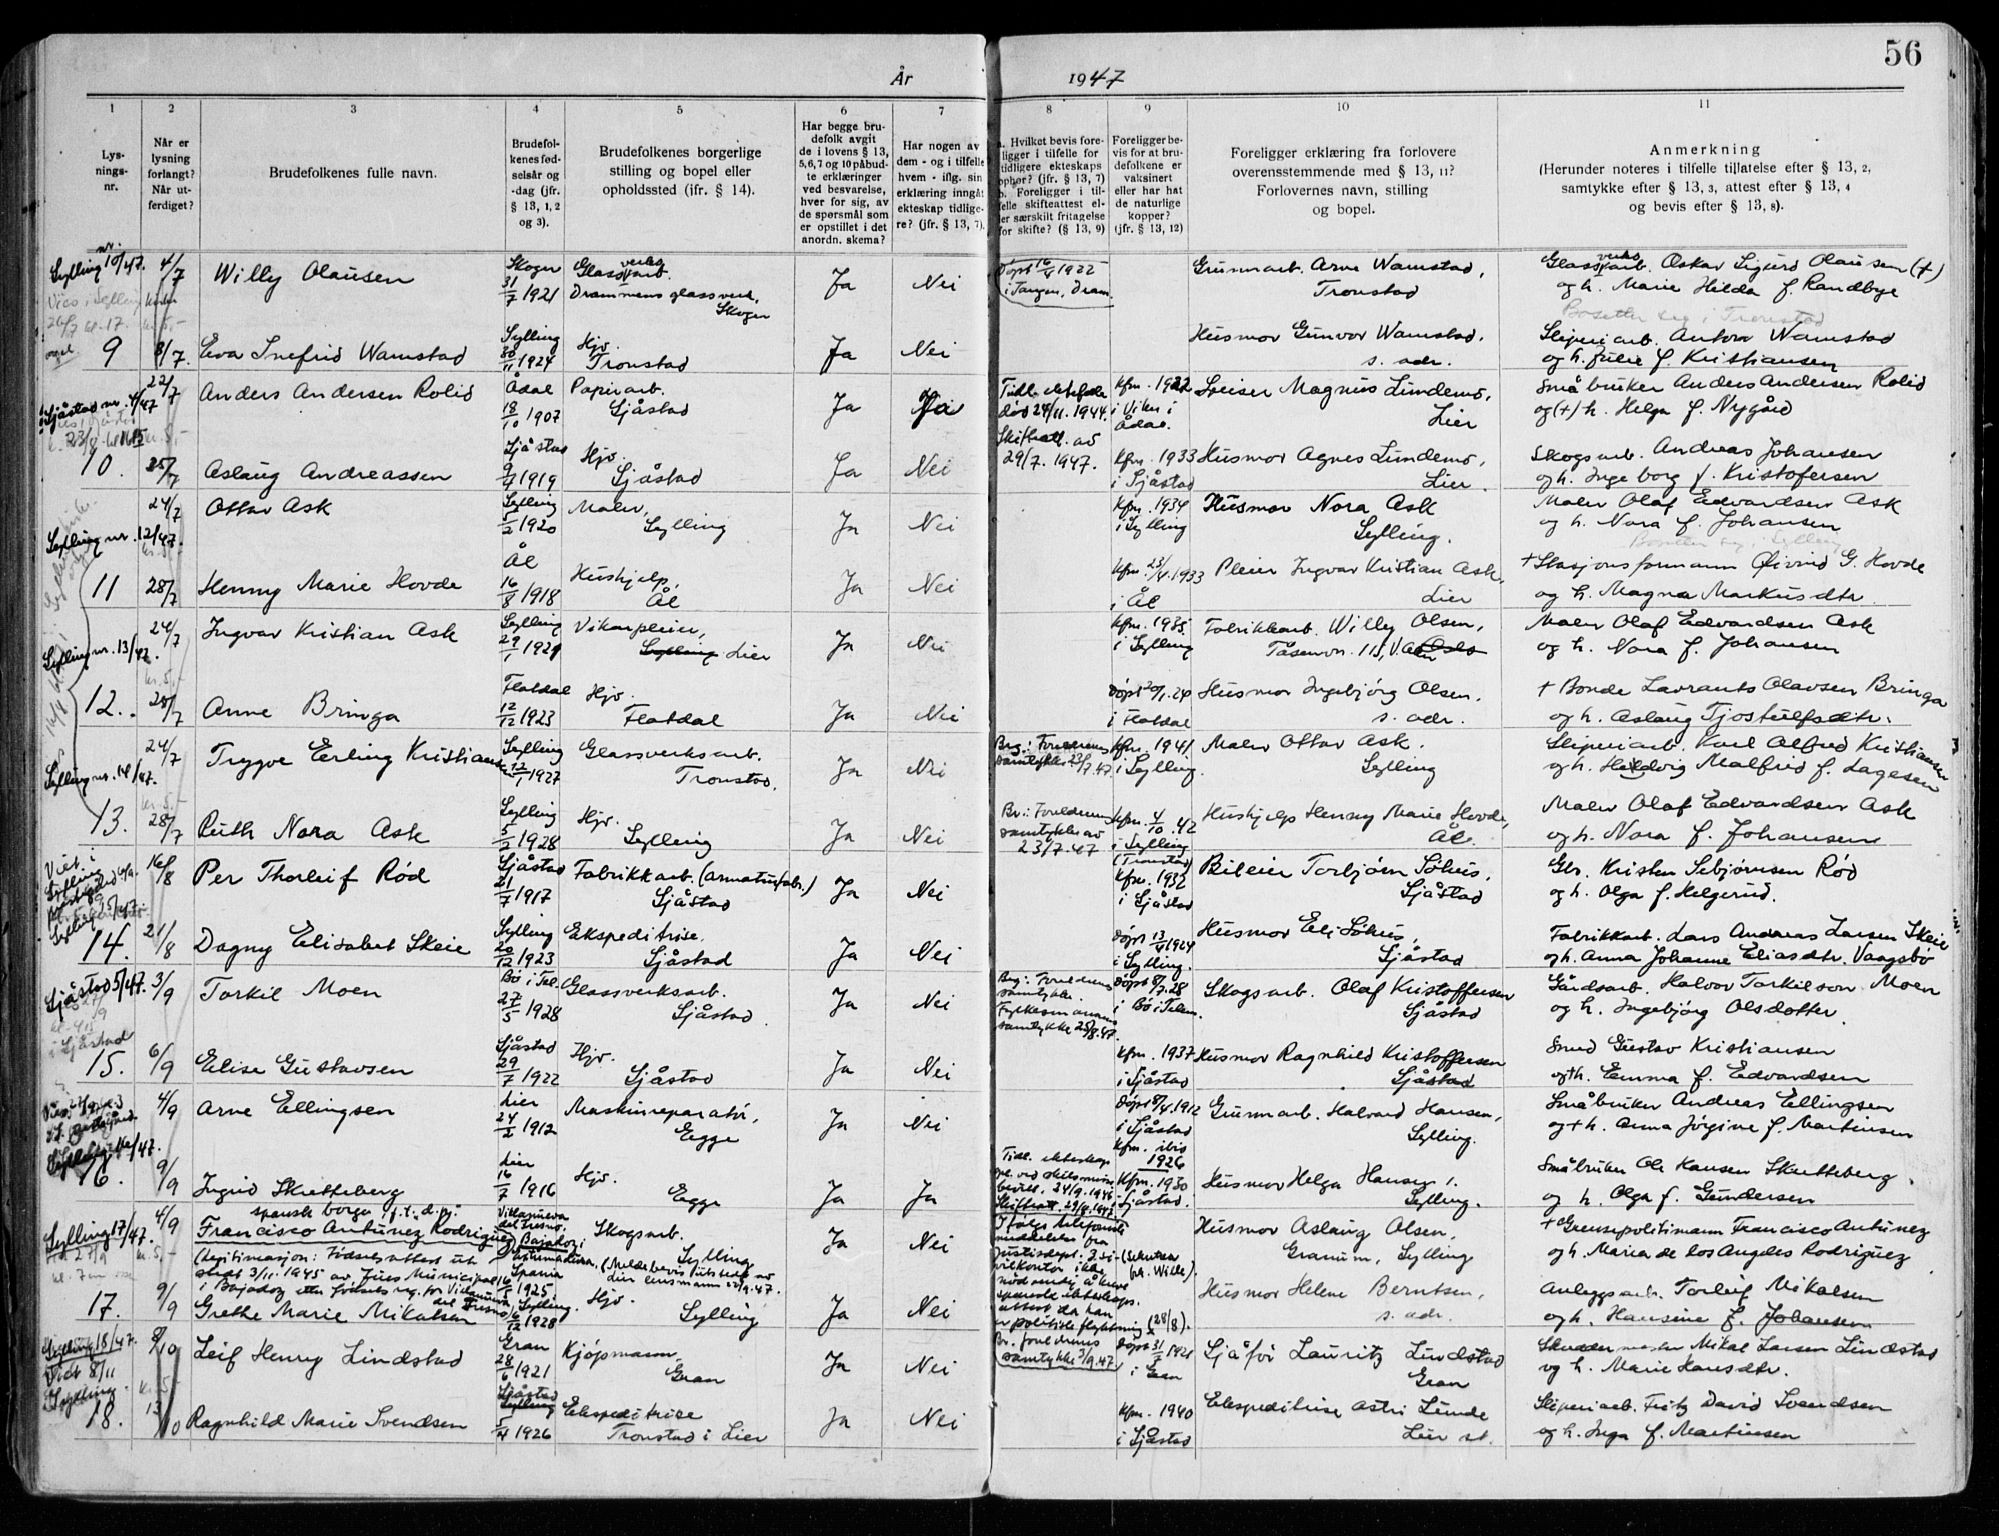 56
År
1947
1
2
3
4
5
6
7
8
9
10
11
Lysningsnr.
Når er lysning forlangt? Når utferdiget?
Brudefolkenes fulle navn.
Brudefolkenes fødselsår og -dag (jfr. § 13, 1, 2 og 3).
Brudefolkenes borgerlige stilling og bopel eller opholdssted (ifr. § 14).
Har begge brudefolk avgit de i lovens § 13, 5,6,7 og 10 påbudte erklæringer ved besvarelse, hver for sig, av de spørsmål som er opstillet i det anordn. skema?
Har nogen av dem - og i tilfelle hvem - iflg. sin erklæring inngåt ekteskap tidligere? (jfr. § 13, 7).
a. Hvilket bevis foreligger i tilfelle for tidligere ekteskaps ophør? (jfr. § 13, 7) b. Foreligger i tilfelle skifteattest eller særskilt fritagelse for skifte? (§ 13, 9)
Foreligger bevis for at brudefolkene er vaksinert eller har hat de naturlige kopper? (jfr. § 13, 12)
Foreligger erklæring fra forlovere overensstemmende med § 13, 11? Forlovernes navn, stilling og bopel.
Anmerkning (Herunder noteres i tilfelle tillatelse efter § 13, 2, samtykke efter § 13, 3, attest efter § 13, 4 og bevis efter § 13, 8).
Sylling nr. 10/47. 4/7 Willy Olausen Skoger 31/7 1921 Glassverksarb. Drammens glassverk, Skoger Ja Nei Døpt 16/4 1922 i Tangen, Dram. Grunnarb. Arne Wamstad, Tronstad Glassverksarb. Oskar Sigurd Olausen (+) og h. Marie Hilda f. Randbye
Bosetter seg i Tronstad
9 8/7. Eva Snefrid Wamstad Sylling 30/11 1924 Hjv. Tronstad Ja Nei Husmor Gunvor Wamstad, s. adr. Sliperiarb. Anton Wamstad og h. Julie f. Kristiansen
Sjåstad nr. 4/47 22/7 Anders Andersen Rolid Ådal 18/10 1907 Papirarb. Sjåstad Ja Ja Tidl. ektefelle død 24/11. 1944. Skifteatt. av 29/7. 1947. Kfm. 1922 i Viker i Ådal. Sveiser Magnus Lundemo, Lier Småbruker Anders Andersen Rolid og (+) h. Helga f. Nygård
10. 25/7 Aslaug Andreassen Sjåstad 9/4 1919 Hjv. Sjåstad Ja Nei Kfm. 1933 i Sjåstad Husmor Agnes Lundemo, Lier. Skogsarb. Andreas Johansen og h. Ingeborg f. Kristofersen
Sylling nr. 12/47. 24/7 Ottar Ask Sylling 1/2 1920 Maler, Sylling Ja Nei Kfm. 1934 i Sylling Husmor Nora Ask Sylling. Maler Olaf Edvardsen Ask og h. Nora f. Johansen
Bosetter seg i Sylling
11 28/7 Henny Marie Hovde Ål 16/8 1918 Hushjelp, Ål Ja Nei Kfm. 23/4.1933 i Ål Pleier Ingvar Kristian Ask, Lier + Stasjonsformann Øivind G. Hovde og h. Magna Markusdtr.
Sylling nr. 13/47. 24/7 Ingvar Kristian Ask Sylling 29/1 1921 Vikarpleier, Sylling Lier Ja Nei Kfm. 1935. i Sylling Fabrikkarb. Willy Olsen, Tåsenvn. 115, V. Aker Oslo Maler Olaf Edvardsen Ask og h. Nora f. Johansen
12. 28/7 Anne Bringa Flatdal 12/12 1923 Hjv. Flatdal Ja Nei Døpt 20/1.24 i Flatdal Husmor Ingebjørg Olsen, s. adr. + Bonde Lavrants Olavsen Bringa og h. Aslaug Tjostulfsdtr.
Sylling nr. 14/47. 24/7 Trygve Erling Kristiansen Sylling 12/1 1927 Glassverksarb. Tronstad. Ja Nei Brg.: Foreldrenes samtykke 23/7.47 Kfm. 1941 i Sylling. Maler Ottar Ask. Sylling Sliperiarb. Karl Alfred Kristiansen og h. Hedvig Malfrid f. Lagesen
13. 28/7 Ruth Nora Ask Sylling 5/2 1928 Hjv. Sylling Ja Nei Br.: Foreldrenes samtykke av 23/7.47 Kfm. 4/10.42 i Sylling (Tronstad) Hushjelp Henny Marie Hovde, Ål. Maler Olaf Edvardsen Ask og h. Nora f. Johansen
Viet i Sylling Sylling 15/47. 16/8 Per Thorleif Rød Sjåstad 21/7 1917 Fabrikkarb. (armaturfabr.) Sjåstad Ja Nei Kfm. 1932 i Sjåstad Bileier Torbjørn Søhus, Sjåstad Gbr. Kristen Sebjørnsen Rød og h. Olga f. Helgerud.
14. 21/8 Dagny Elisabet Skeie Sylling 20/12 1923 Ekspeditrise. Sjåstad Ja Nei Døpt 13/4 1924 i Sylling. Husmor Eli Søhus, Sjåstad Fabrikkarb. Lars Andreas Larsen Skeie og h. Anna Johanne Eliasdtr. Vaagsbø
Sjåstad 5/47. 3/9 Torkil Moen Bø i Tel. 27/5 1928 Glassverksarb. Sjåstad Ja Nei Brg: Foreldrenes samtykke. Fylkesmannens samtykke 25/8.47. Døpt 8/7.28 i Bø i Telem. Skogsarb. Olaf Kristoffersen Sjåstad Gårdsarb. Halvor Torkilson Moen og h. Ingebjørg Olsdotter.
15. 6/9 Elise Gustavsen Sjåstad 29/7 1922 Hjv. Sjåstad Ja Nei Kfm. 1937 i Sjåstad Husmor Ragnhild Kristoffersen Sjåstad Smed Gustav Kristiansen og h. Emma f. Edvardsen
Sylling 16/47. 4/9 Arne Ellingsen Lier 24/2 1912 Maskinreparatør, Egge Ja Nei Døpt 8/4.1912 i Sjåstad Kfm. ibis 1926 Grunnarb. Halvard Hansen, Sylling. Småbruker Andreas Ellingsen og + h. Anna Jørgine f. Martinsen
16. 9/9 Ingrid Skretteberg Lier 16/7 1916 Hjv. Egge Ja Ja Tidl. ekteskap opl. ved skilsmissebevill. 24/9.1946 Skifteatt 29/8.1947 Kfm. 1930 Sjåstad. Husmor Helga Hansen Sylling. Småbruker Ole Hansen Skretteberg. og h. Olga f. Gundersen
Sylling 17/47. 4/9 spansk borger, f.t. d.pg. Francisco Antúnez Rodriguez (Legitimasjon: Fødselsattest utstedt 3/11. 1945 av Jues Municipal i Bajadoz etter fødsels reg. for Villanueva del Fresno) Villanueva del Fresno, Bajadoz, Spania 16/5 1925 Skogsarb. Sylling (Meldebevis utstedt av Lier lensmann 27/9.47. Ja Nei Ifølge telefonisk meddelelse fra Justisdept. 2. sivilkontor ikke nødvendig å kreve spansk ekteskapsattest da han er politisk flyktning (28/8). (Sekretær hr. Wille). Husmor Aslaug Olsen, Granum, Sylling + Grensepolitimann Francisco Antúnez og h. Maria de los Angeles Rodriguez
17. 9/9 Grethe Marie Mikalsen Sylling. 6/12 1928 Hjv. Sylling Ja Nei Br. foreldrenes samtykke 3/9.47. Husmor Helene Berntsen, s. adr. Anleggsarb. Torleif Mikalsen og h. Hansine f. Johansen
Sylling 18/47. Viet 8/11 Sylling. 8/10 Leif Henry Lindstad Gran 28/6 1921 Kjøpmann, Gran Ja Nei Døpt 31/7 1921 i Gran Sjåfør Lauritz Lindstad Gran Skreddermester Mikal Larsen Lindstad og h. Marie Hansdtr.
18. 13/10 Ragnhild Marie Svendsen Sjåstad Sylling 5/4 1926 Ekspeditrise Tronstad i Lier Ja Nei Kfm. 1940 i Sjåstad Ekspeditrise Astri Lunde Lier st. Sliperiarb. Fritz David Svendsen og h. Inga f. Martinsen